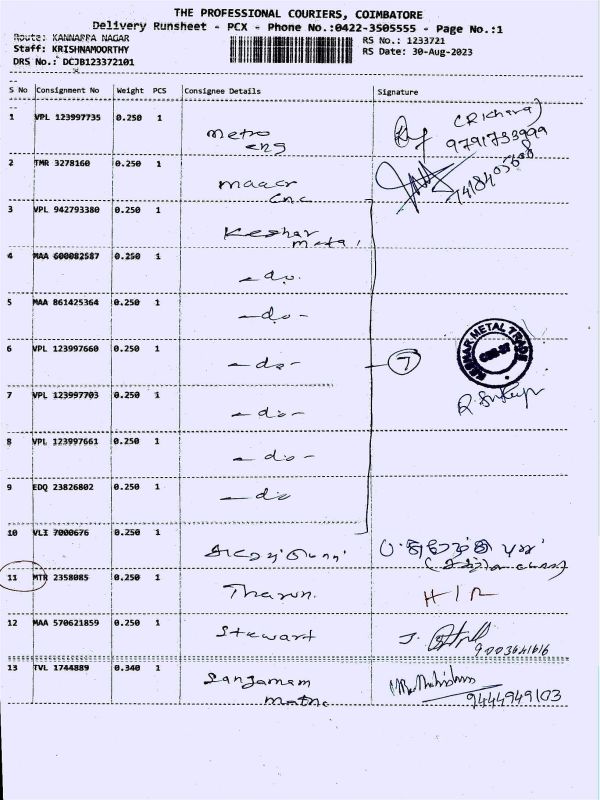 THE PROFESSIONAL COURIERS, COIMBATORE
Delivery Runsheet - PCX - Phone No.:0422-3505555 - Page No.:1
Route: KANNAPPA NAGAR
Staff: KRISHNAMOORTHY
DRS No.: DCJB123372101
RS No.: 1233721
RS Date: 30-Aug-2023
S No Consignment No Weight PCS Consignee Details Signature
1 VPL 123997735 0.250 1 Metro
Eng
9791733999
2 TMR 3278160 0.250 1
3 VPL 942793380 0.250 1 Keshar
4 MAA 600082587 0.250 1 -do-
5 MAA 861425364 0.250 1 -do-
6 VPL 123997660 0.250 1 -do-
7
KESHAR METAL TRADE
7 VPL 123997703 0.250 1 -do-
8 VPL 123997661 0.250 1 -do-
9 EDQ 23826802 0.250 1 -do
10 VLI 7000676 0.250 1
11 MTR 2358085 0.250 1 Tharun.
12 MAA 570621859 0.250 1 Stewart
9003641616
13 TVL 1744889 0.340 1 Sangamam
9444949103